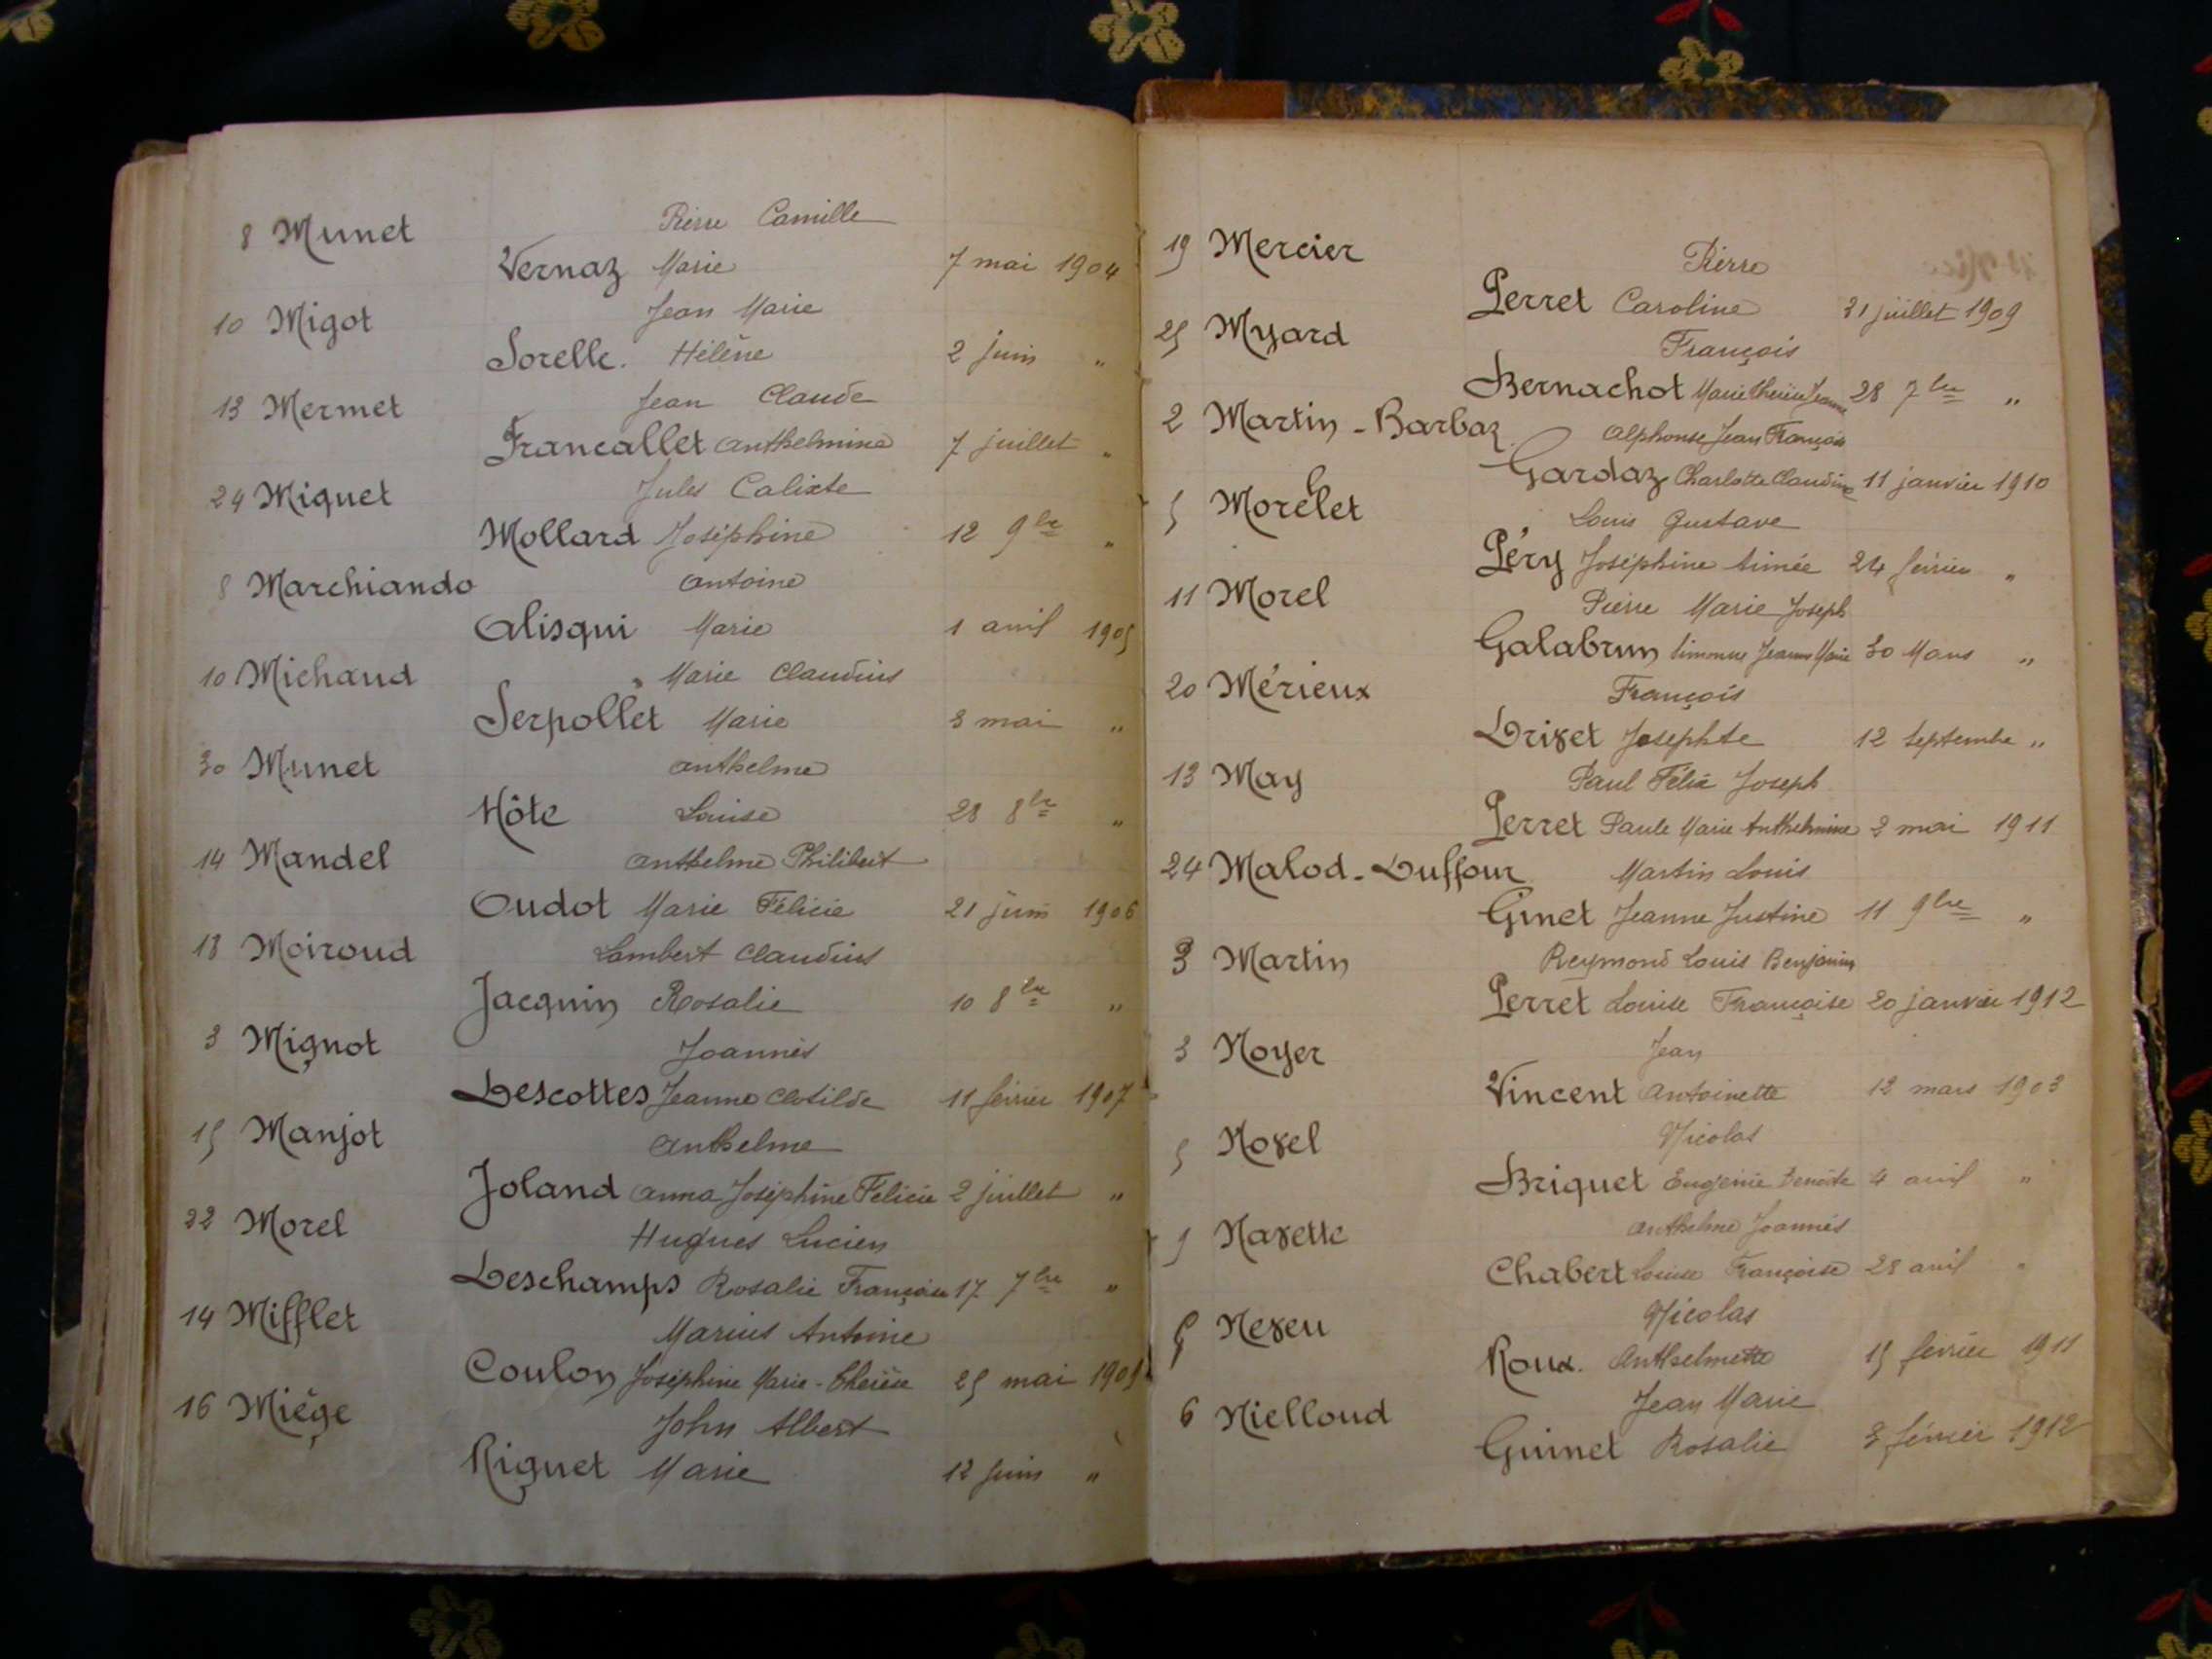 8 Munet Pierre Camille
Vernaz Marie 7 mai 1904
10 Migot Jean Marie
Sorelle. Hélène 2 juin "
13 Mermet Jean Claude
Francallet Anthelmine 7 juillet "
24 Miguet Jules Calixte
Mollard Joséphine 12 9bre "
8 Marchiando Antoine
Alisqui Marie 1 avril 1905
10 Michaud Marie Claudius
Serpollet Marie 3 mai "
30 Munet Anthelme
Hôte Louise 28 8bre "
14 Mandel Anthelme Philibert
Oudot Marie Félicie 21 juin 1906
18 Moiroud Lambert Claudius
Jacquin Rosalie 10 8bre "
3 Mignot Joannès
Descottes Jeanne Clotilde 11 février 1907
15 Manjot Anthelme
Joland Anna Joséphine Félicie 2 juillet "
22 Morel Hugues Lucien
Deschamps Rosalie Françoise 17 7bre "
14 Mifflet Marius Antoine
Coulon Joséphine Marie-Thérèse 25 mai 1909
16 Miège John Albert
Riguet Marie 12 juin "
19 Mercier Pierre
Perret Caroline 31 juillet 1909
25 Myard François
Bernachot Marie Thérèse Jeanne 28 7bre "
2 Martin-Barbaz Alphonse Jean François
Gardaz Charlotte Claudine 11 janvier 1910
5 Morelet Louis Gustave
Péry Joséphine Aimée 24 février "
11 Morel Pierre Marie Joseph
Galabrun Simonne Jeanne Marie 30 Mars "
20 Mérieux François
Drivet Josephte 12 Septembre "
13 May Paul Félix Joseph
Perret Paule Marie Anthelmine 2 mai 1911
24 Malod-Duffour Martin Louis
Ginet Jeanne Justine 11 9bre "
3 Martin Reymond Louis Benjamin
Perret Louise Françoise 20 janvier 1912
3 Noyer Jean
Vincent Antoinette 12 mars 1903
5 Novel Nicolas
Briquet Eugénie Benoîte 4 avril "
9 Navette Anthelme Joannès
Chabert Louise Françoise 28 avril "
Neveu Nicolas
Roux. Anthelmette 15 février 1911
6 Nielloud Jean Marie
Guinet Rosalie 3 février 1912